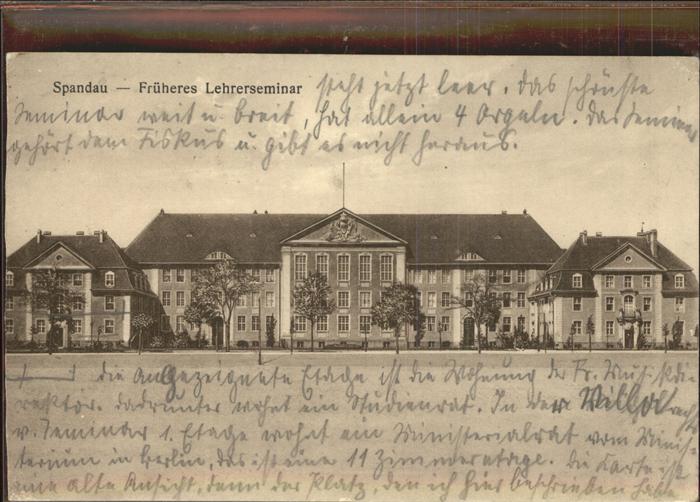 Spandau — Früheres Lehrerseminar
steht jetzt leer. das schönste
Seminar weit u. breit, hat allein 4 Orgeln. das Seminar
gehört dem Fiskus u. gibt es nicht heraus.
die angezeignete Etage ist die Wohnung der Fr. Musikdi-
rektor. dadrunter wohnt ein Studienrat. In dem
v. Seminar 1. Etage wohnt ein Ministerialrat vom Minis-
terium in Berlin, das ist eine 11 Zimmeretage. die Karte ist
eine alte Ansicht, denn der Platz, den ich hier beschrieben habe